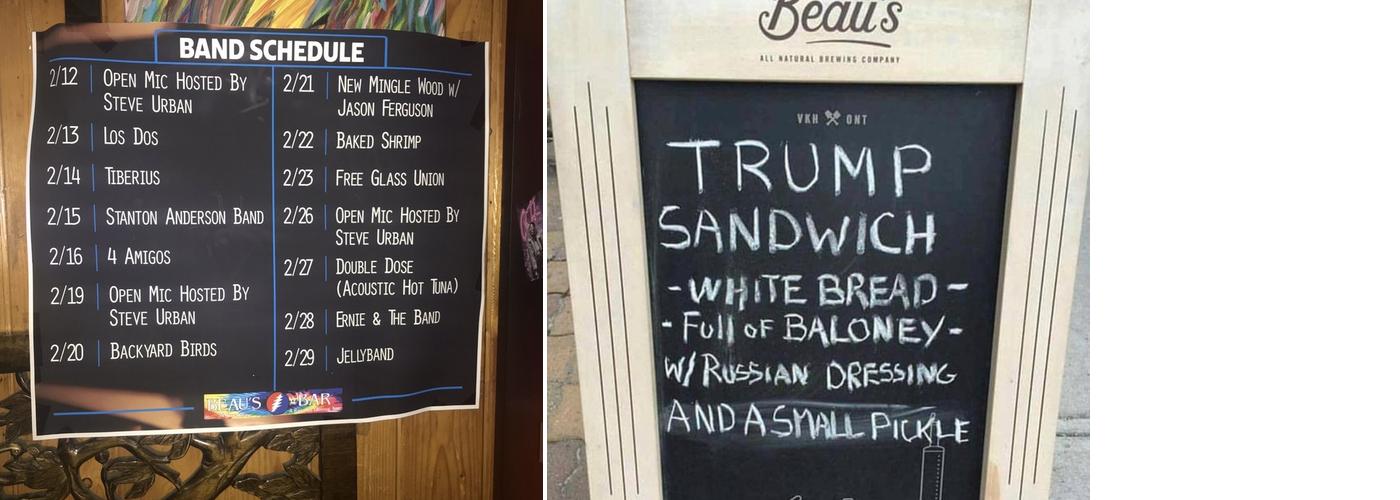 BAND SCHEDULE
2/12 OPEN MIC HOSTED BY
STEVE URBAN
2/13 LOS DOS
2/14 TIBERIUS
2/15 STANTON ANDERSON BAND
2/16 4 AMIGOS
2/19 OPEN MIC HOSTED BY
STEVE URBAN
2/20 BACKYARD BIRDS
2/21 NEW MINGLE WOOD W/
JASON FERGUSON
2/22 BAKED SHRIMP
2/23 FREE GLASS UNION
2/26 OPEN MIC HOSTED BY
STEVE URBAN
2/27 DOUBLE DOSE
(ACOUSTIC HOT TUNA)
2/28 ERNIE & THE BAND
2/29 JELLYBAND
BEAU'S BAR
Beau's
ALL NATURAL BREWING COMPANY
VKH ONT
TRUMP
SANDWICH
-WHITE BREAD-
-Full OF BALONEY-
W/ RUSSIAN DRESSING
AND A SMALL PICKLE